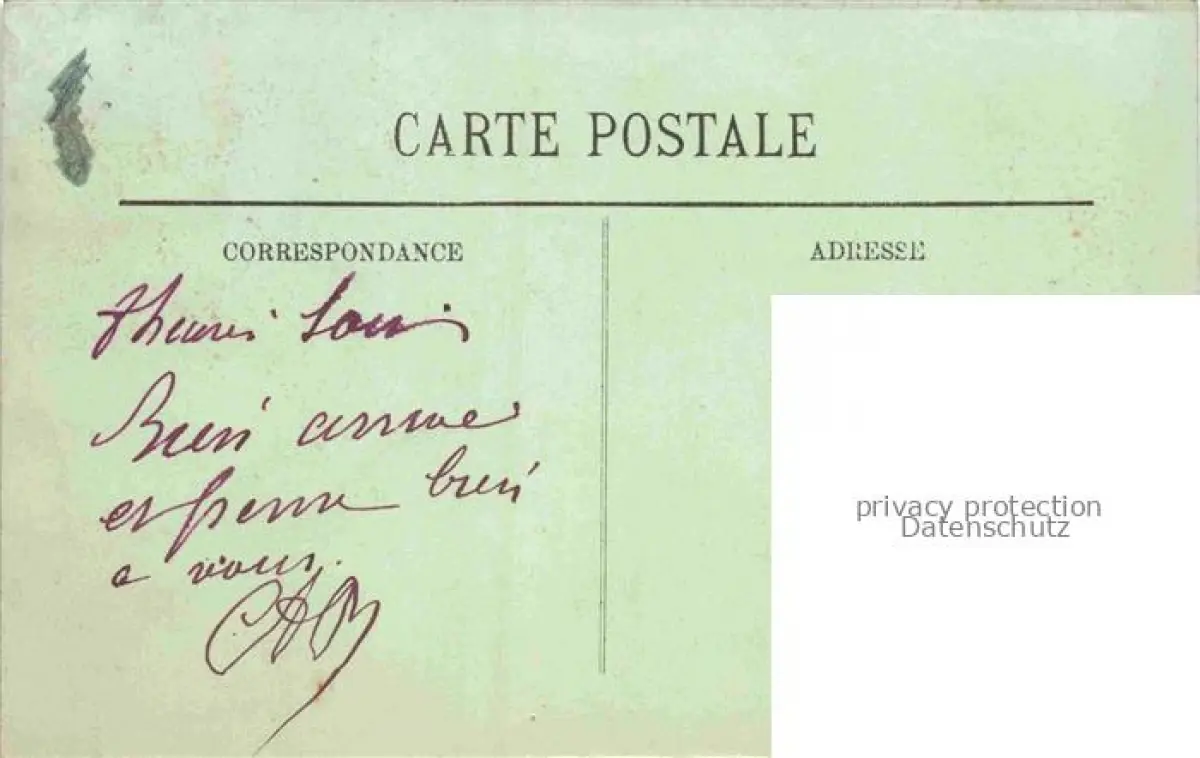 CARTE POSTALE
CORRESPONDANCE
ADRESSE
Bien arrivé
et pense bien
a vous.
privacy protection
Datenschutz